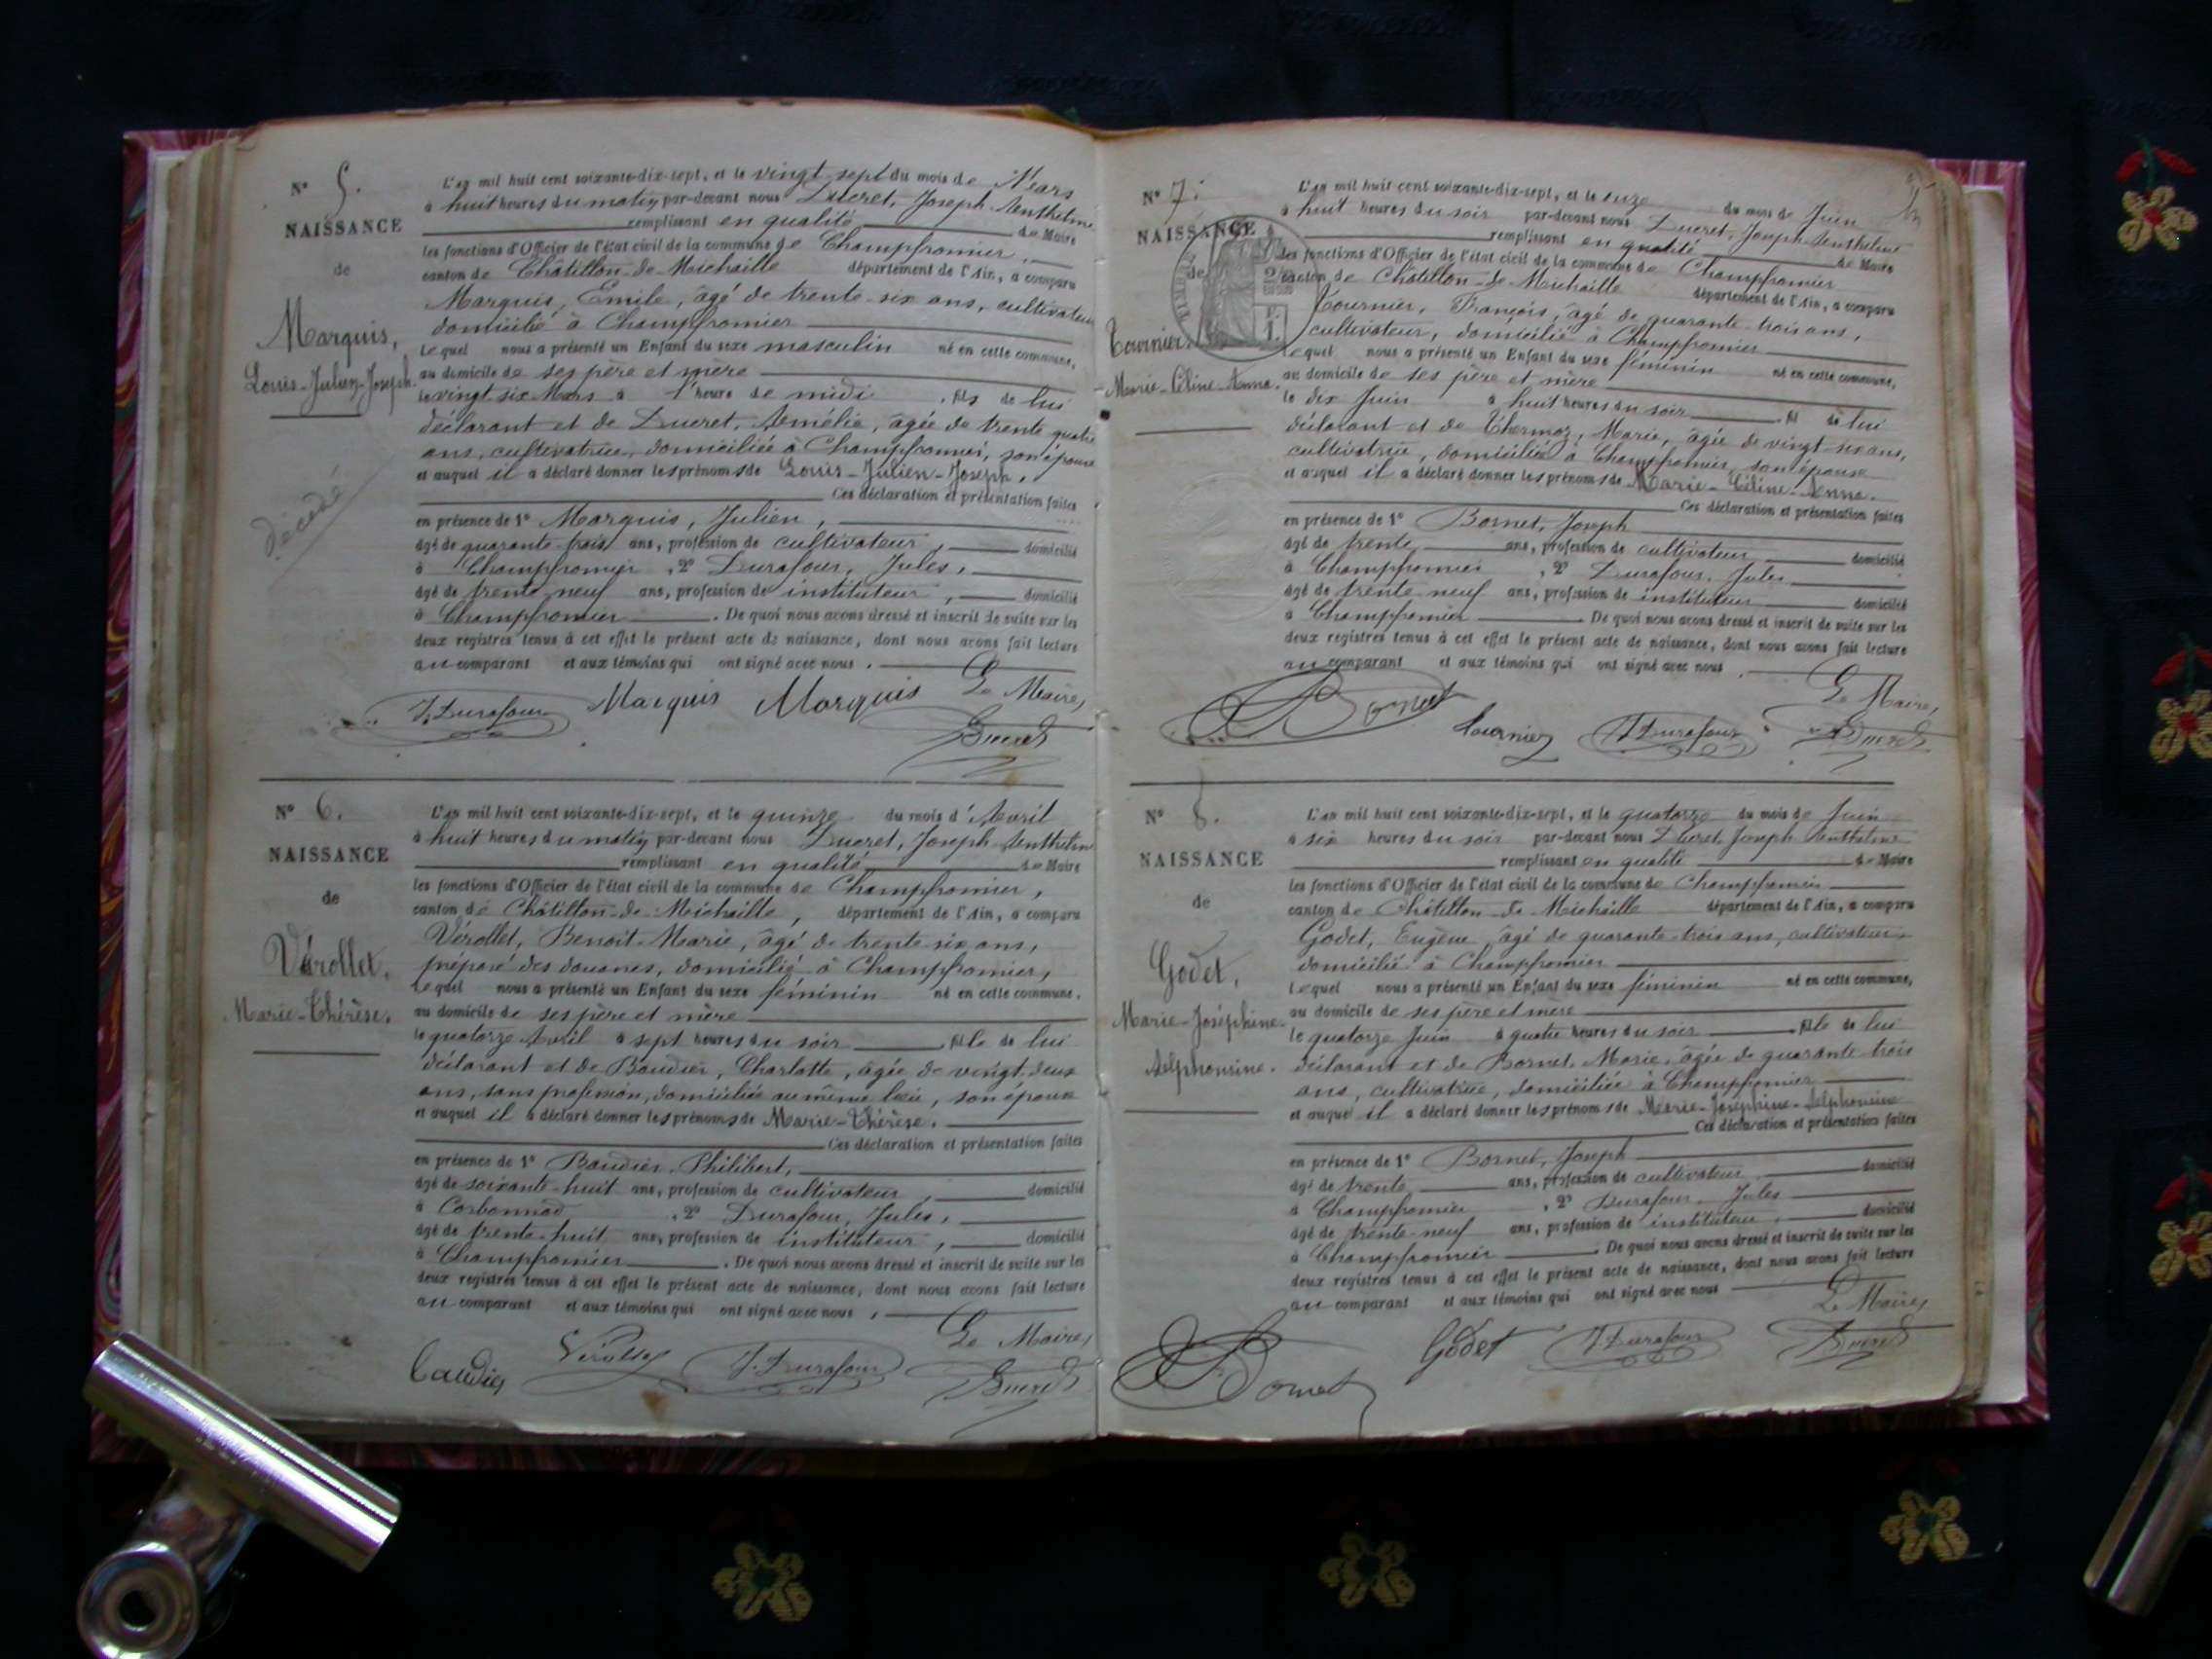 N° 5.
NAISSANCE
de
Marquis,
Louis-Julien-Joseph.
décédé
L'an mil huit cent soixante-dix-sept, et le vingt-sept du mois de Mars
à huit heures du matin par-devant nous Ducret, Joseph Anthelme
remplissant en qualité de Maire
les fonctions d'Officier de l'état civil de la commune de Champfromier,
canton de Châtillon-de-Michaille département de l'Ain, a comparu
Marquis, Emile, âgé de trente-six ans, cultivateur
domicilié à Champfromier
Lequel nous a présenté un Enfant du sexe masculin né en cette commune,
au domicile de ses père et mère
le vingt-six Mars à l'heure de midi, fils de lui
déclarant et de Ducret, Amélie, âgée de trente quatre
ans, cultivatrice, domiciliée à Champfromier, son épouse
et auquel il a déclaré donner les prénoms de Louis-Julien-Joseph.
Ces déclaration et présentation faites
en présence de 1° Marquis, Julien,
âgé de quarante-trois ans, profession de cultivateur, domicilié
à Champfromier, 2° Durafour, Jules,
âgé de trente-neuf ans, profession de instituteur, domicilié
à Champfromier. De quoi nous avons dressé et inscrit de suite sur les
deux registres tenus à cet effet le présent acte de naissance, dont nous avons fait lecture
au comparant et aux témoins qui ont signé avec nous.
Le Maire,
J. Durafour Marquis Marquis
Ducret
N° 6.
NAISSANCE
de
Vérollet,
Marie-Thérèse.
L'an mil huit cent soixante-dix-sept, et le quinze du mois d'Avril
à huit heures du matin par-devant nous Ducret, Joseph Anthelme
remplissant en qualité de Maire
les fonctions d'Officier de l'état civil de la commune de Champfromier,
canton de Châtillon-de-Michaille, département de l'Ain, a comparu
Vérollet, Benoit-Marie, âgé de trente-six ans,
préposé des douanes, domicilié à Champfromier,
Lequel nous a présenté un Enfant du sexe féminin né en cette commune,
au domicile de ses père et mère
le quatorze Avril à sept heures du soir, fille de lui
déclarant et de Baudier, Charlotte, âgée de vingt-deux
ans, sans profession, domiciliée au même lieu, son épouse
et auquel il a déclaré donner les prénoms de Marie-Thérèse.
Ces déclaration et présentation faites
en présence de 1° Baudier, Philibert,
âgé de soixante-huit ans, profession de cultivateur, domicilié
à Corbonnod, 2° Durafour, Jules,
âgé de trente-huit ans, profession de instituteur, domicilié
à Champfromier. De quoi nous avons dressé et inscrit de suite sur les
deux registres tenus à cet effet le présent acte de naissance, dont nous avons fait lecture
au comparant et aux témoins qui ont signé avec nous,
Le Maire,
Baudier Vérollet J. Durafour Ducret
N° 7.
NAISSANCE
de
Tournier,
Marie-Céline-Anna.
L'an mil huit cent soixante-dix-sept, et le onze du mois de Juin
à huit heures du soir par-devant nous Ducret, Joseph Anthelme
remplissant en qualité de Maire
les fonctions d'Officier de l'état civil de la commune de Champfromier
canton de Châtillon-de-Michaille département de l'Ain, a comparu
Tournier, François, âgé de quarante-trois ans,
cultivateur, domicilié à Champfromier
Lequel nous a présenté un Enfant du sexe féminin né en cette commune,
au domicile de ses père et mère
le dix Juin à huit heures du soir, fil de lui
déclarant et de Thermoz, Marie, âgée de vingt-six ans,
cultivatrice, domiciliée à Champfromier, son épouse
et auquel il a déclaré donner les prénoms de Marie-Céline-Anna.
Ces déclaration et présentation faites
en présence de 1° Bornet, Joseph
âgé de trente ans, profession de cultivateur domicilié
à Champfromier, 2° Durafour, Jules
âgé de trente-neuf ans, profession de instituteur domicilié
à Champfromier. De quoi nous avons dressé et inscrit de suite sur les
deux registres tenus à cet effet le présent acte de naissance, dont nous avons fait lecture
au comparant et aux témoins qui ont signé avec nous.
Le Maire,
Bornet Tournier J. Durafour Ducret
N° 8.
NAISSANCE
de
Godet,
Marie-Joséphine-
Alphonsine.
L'an mil huit cent soixante-dix-sept, et le quatorze du mois de Juin
à six heures du soir par-devant nous Ducret, Joseph Anthelme
remplissant en qualité de Maire
les fonctions d'Officier de l'état civil de la commune de Champfromier
canton de Châtillon-de-Michaille département de l'Ain, a comparu
Godet, Eugène, âgé de quarante-trois ans, cultivateur,
domicilié à Champfromier
Lequel nous a présenté un Enfant du sexe féminin né en cette commune,
au domicile de ses père et mère
le quatorze Juin à quatre heures du soir, fille de lui
déclarant et de Bornet, Marie, âgée de quarante-trois
ans, cultivatrice, domiciliée à Champfromier
et auquel il a déclaré donner les prénoms de Marie-Joséphine-Alphonsine
Ces déclaration et présentation faites
en présence de 1° Bornet, Joseph
âgé de trente ans, profession de cultivateur domicilié
à Champfromier, 2° Durafour, Jules
âgé de trente-neuf ans, profession de instituteur, domicilié
à Champfromier. De quoi nous avons dressé et inscrit de suite sur les
deux registres tenus à cet effet le présent acte de naissance, dont nous avons fait lecture
au comparant et aux témoins qui ont signé avec nous
Le Maire,
Bornet Godet J. Durafour Ducret